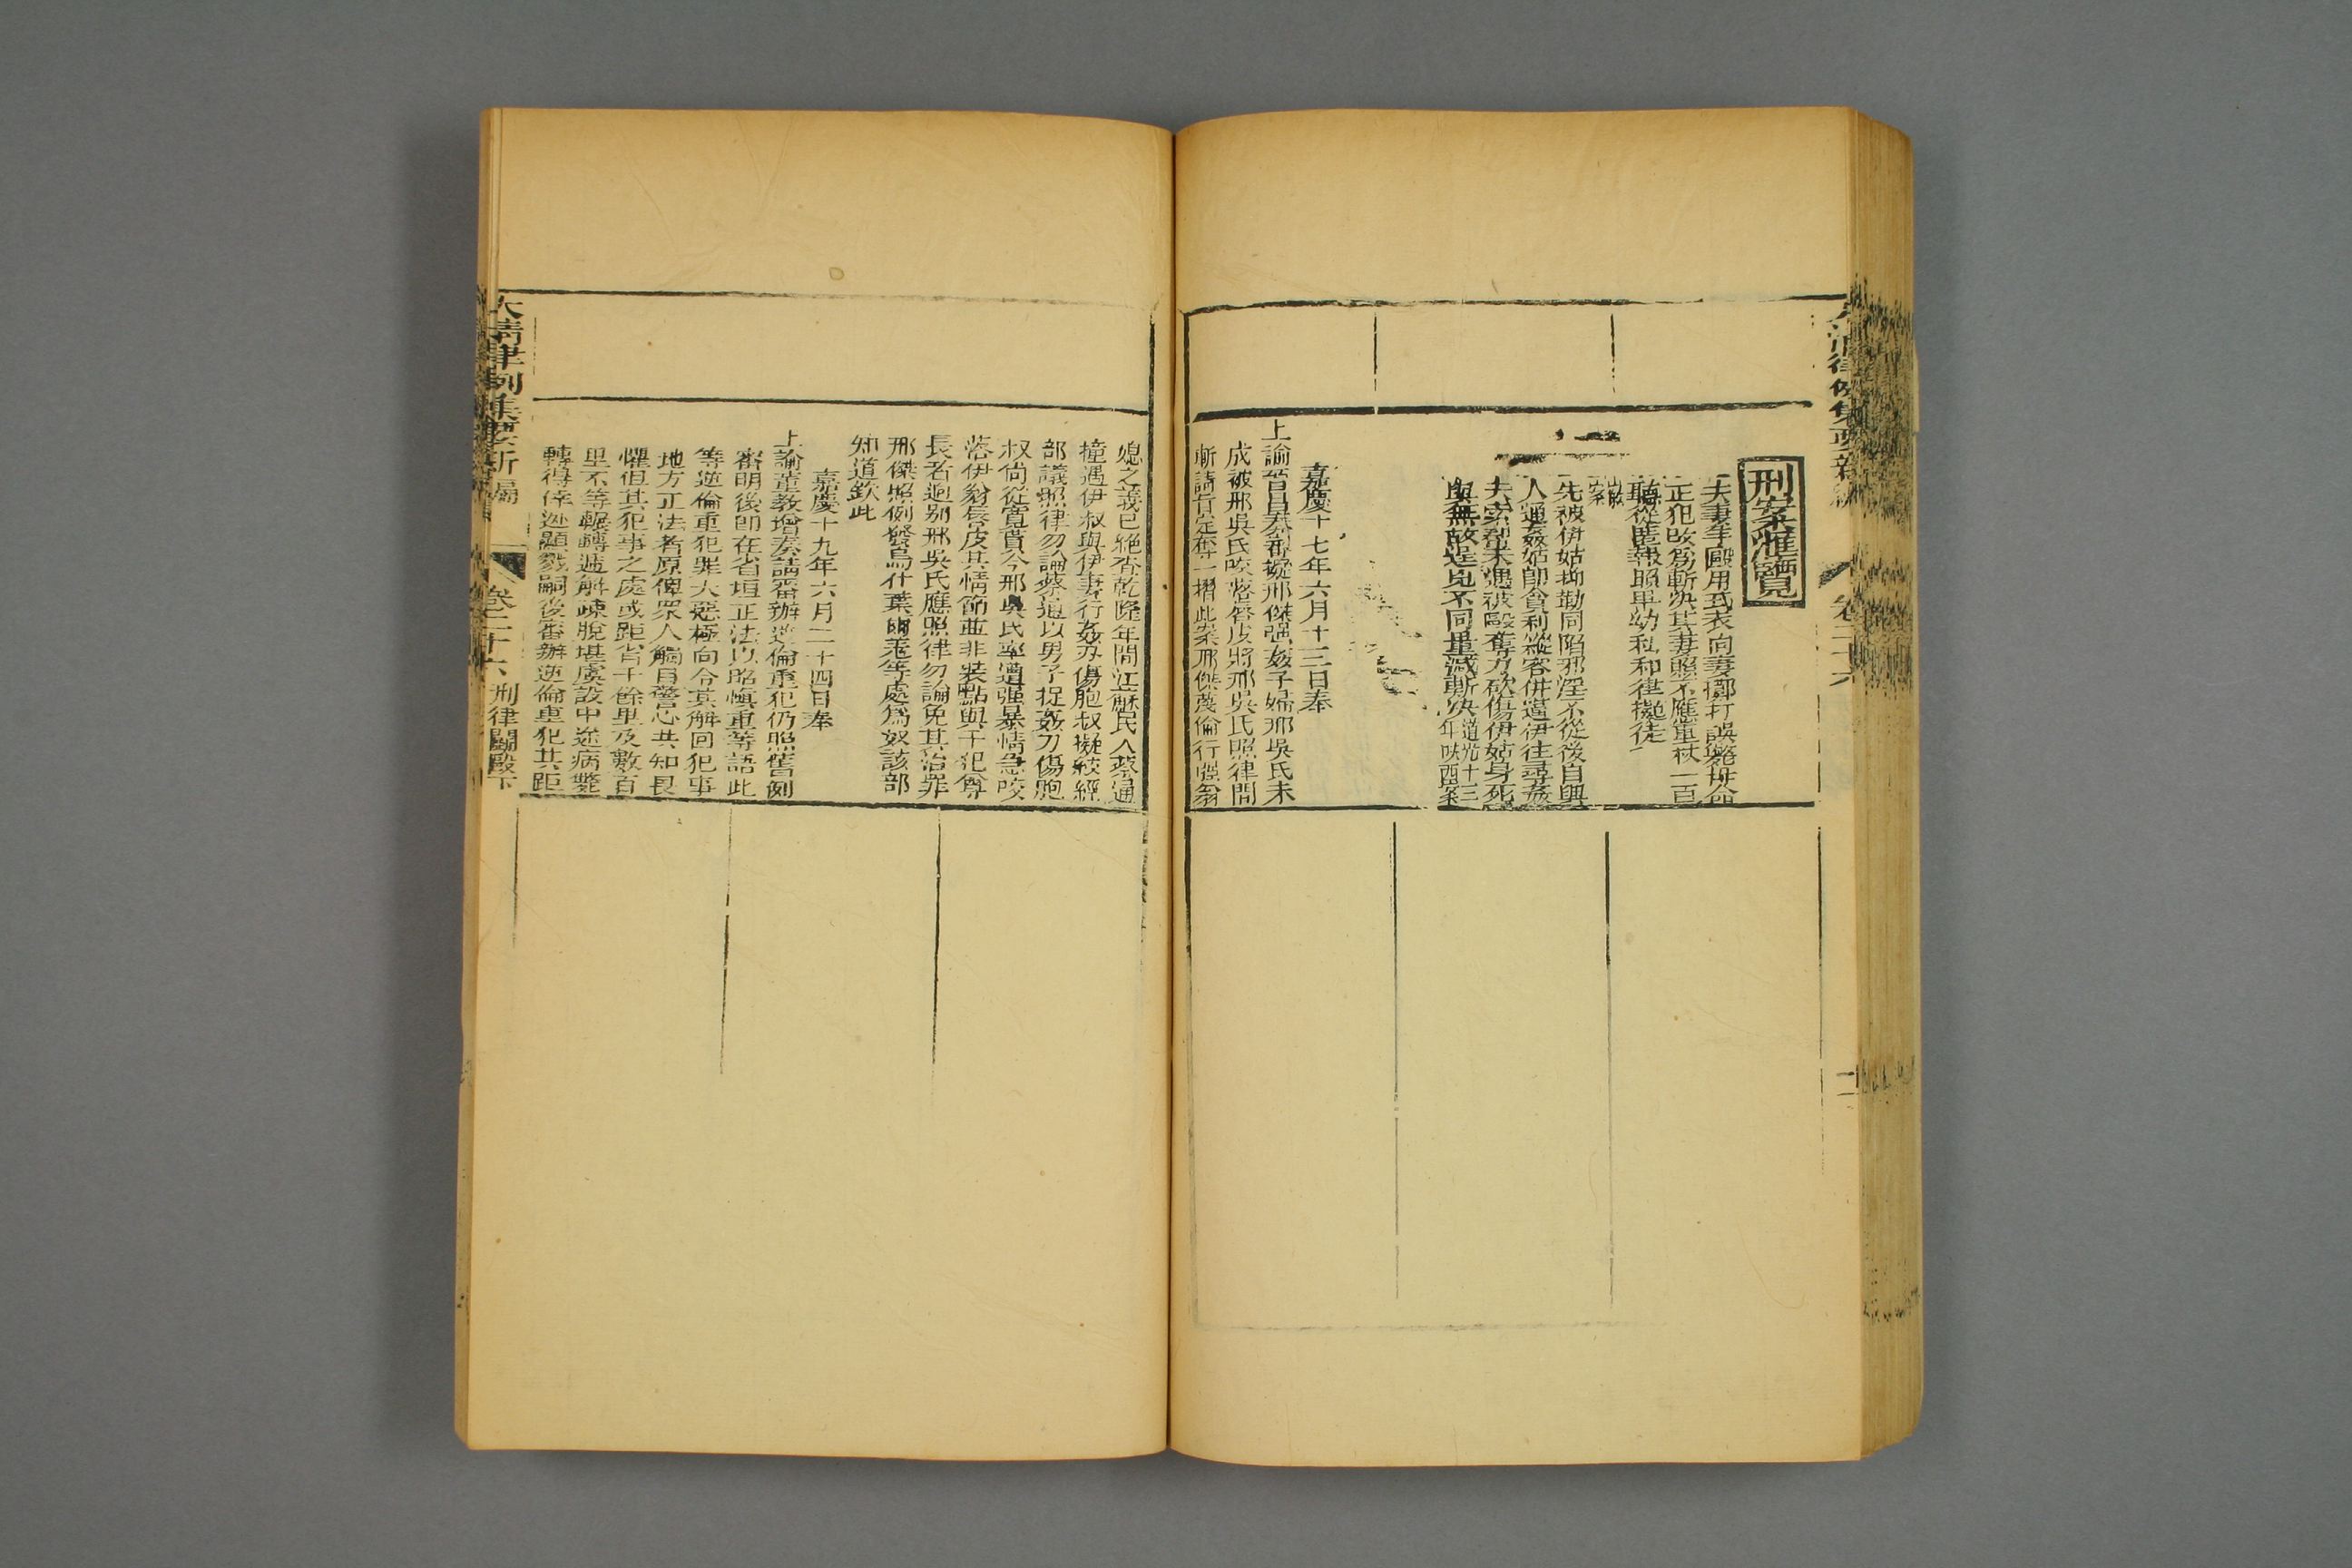 刑案滙覽
一夫妻牟毆用瓦衣向妻擲打誤斃姑命
正犯改爲斬决其妻照不應重杖一百
聽從匿報照卑幼私和律擬徒
一先被伊姑抑勒同陷邪淫不從後自與
人通姦姑卽貪利縱容併逼伊往尋姦
夫索錢未遇被毆奪刀砍傷伊姑身死
與無故逞兇不同量減斬决道光十三
年陝西案
嘉慶十七年六月十三日奉
上諭晋昌奏審擬邢傑强姦子婦邢吳氏未
成被邢吳氏咬落唇皮將邢吳氏照律問
斬請旨定奪一摺此案邢傑蔑倫行强翁
媳之義已絶查乾隆年間江蘇民人蔡通
撞遇伊叔與伊妻行姦刃傷胞叔擬絞經
部議照律勿論蔡通以男子捉姦刀傷胞
叔尙從寬貰今邢吳氏牽遭强暴情急咬
落伊翁唇皮其情節並非裝點與干犯尊
長者迥别邢吳氏應照律勿論免其治罪
邢傑照例發烏什葉爾羌等處爲奴該部
知道欽此
嘉慶十九年六月二十四日奉
上諭董教增奏請審辦逆倫重犯仍照舊例
審明後卽在省垣正法以昭愼重等語此
等逆倫重犯罪大惡極向令其解回犯事
地方正法者原俾衆人觸目警心共知畏
懼但其犯事之處或距省千餘里及數百
里不等輾轉遞解疎脫堪虞設中途病斃
轉得倖逃顯戮嗣後審辦逆倫重犯其距
大淸律例集要新編
卷二十六
刑律鬬毆下